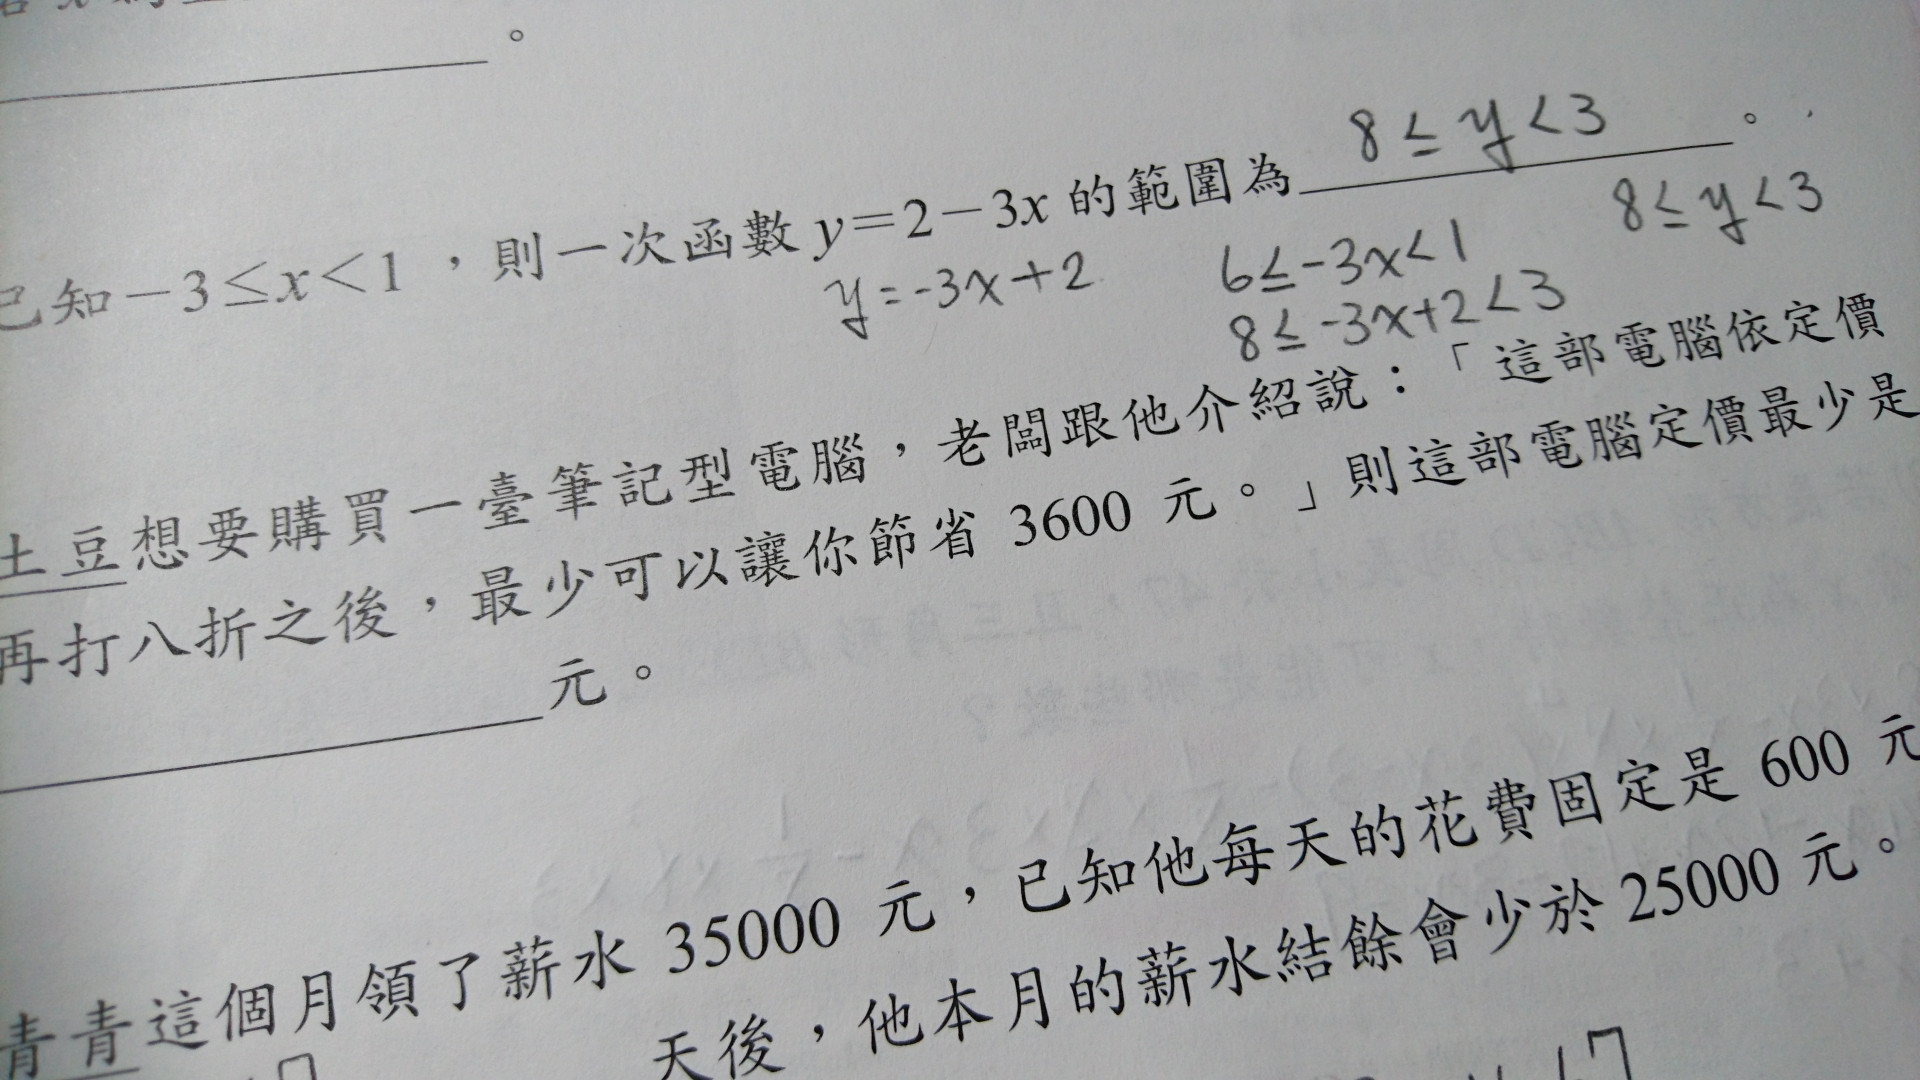 。
8 ≤ y < 3
已知－3≤x＜1，則一次函數 y＝2－3x 的範圍為 。
y = -3x + 2
6 ≤ -3x < 1
8 ≤ y < 3
8 ≤ -3x + 2 < 3
土豆想要購買一臺筆記型電腦，老闆跟他介紹說：「這部電腦依定價
再打八折之後，最少可以讓你節省 3600 元。」則這部電腦定價最少是
元。
青青這個月領了薪水 35000 元，已知他每天的花費固定是 600 元
天後，他本月的薪水結餘會少於 25000 元。